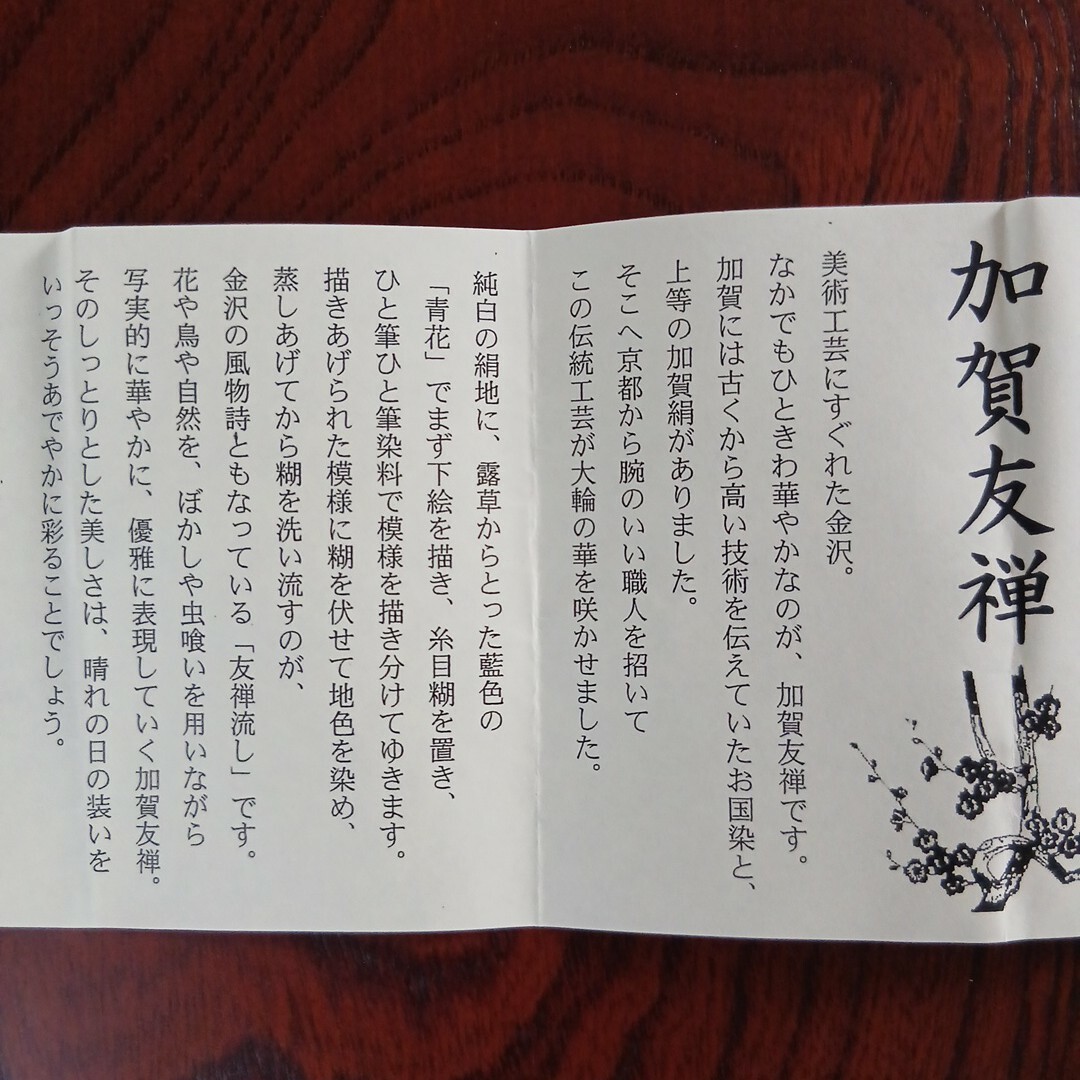 加賀友禅
美術工芸にすぐれた金沢。
なかでもひときわ華やかなのが、加賀友禅です。
加賀には古くから高い技術を伝えていたお国染と、
上等の加賀絹がありました。
そこへ京都から腕のいい職人を招いて
この伝統工芸が大輪の華を咲かせました。
純白の絹地に、露草からとった藍色の
「青花」でまず下絵を描き、糸目糊を置き、
ひと筆ひと筆染料で模様を描き分けてゆきます。
描きあげられた模様に糊を伏せて地色を染め、
蒸しあげてから糊を洗い流すのが、
金沢の風物詩ともなっている「友禅流し」です。
花や鳥や自然を、ぼかしや虫喰いを用いながら
写実的に華やかに、優雅に表現していく加賀友禅。
そのしっとりとした美しさは、晴れの日の装いを
いっそうあでやかに彩ることでしょう。